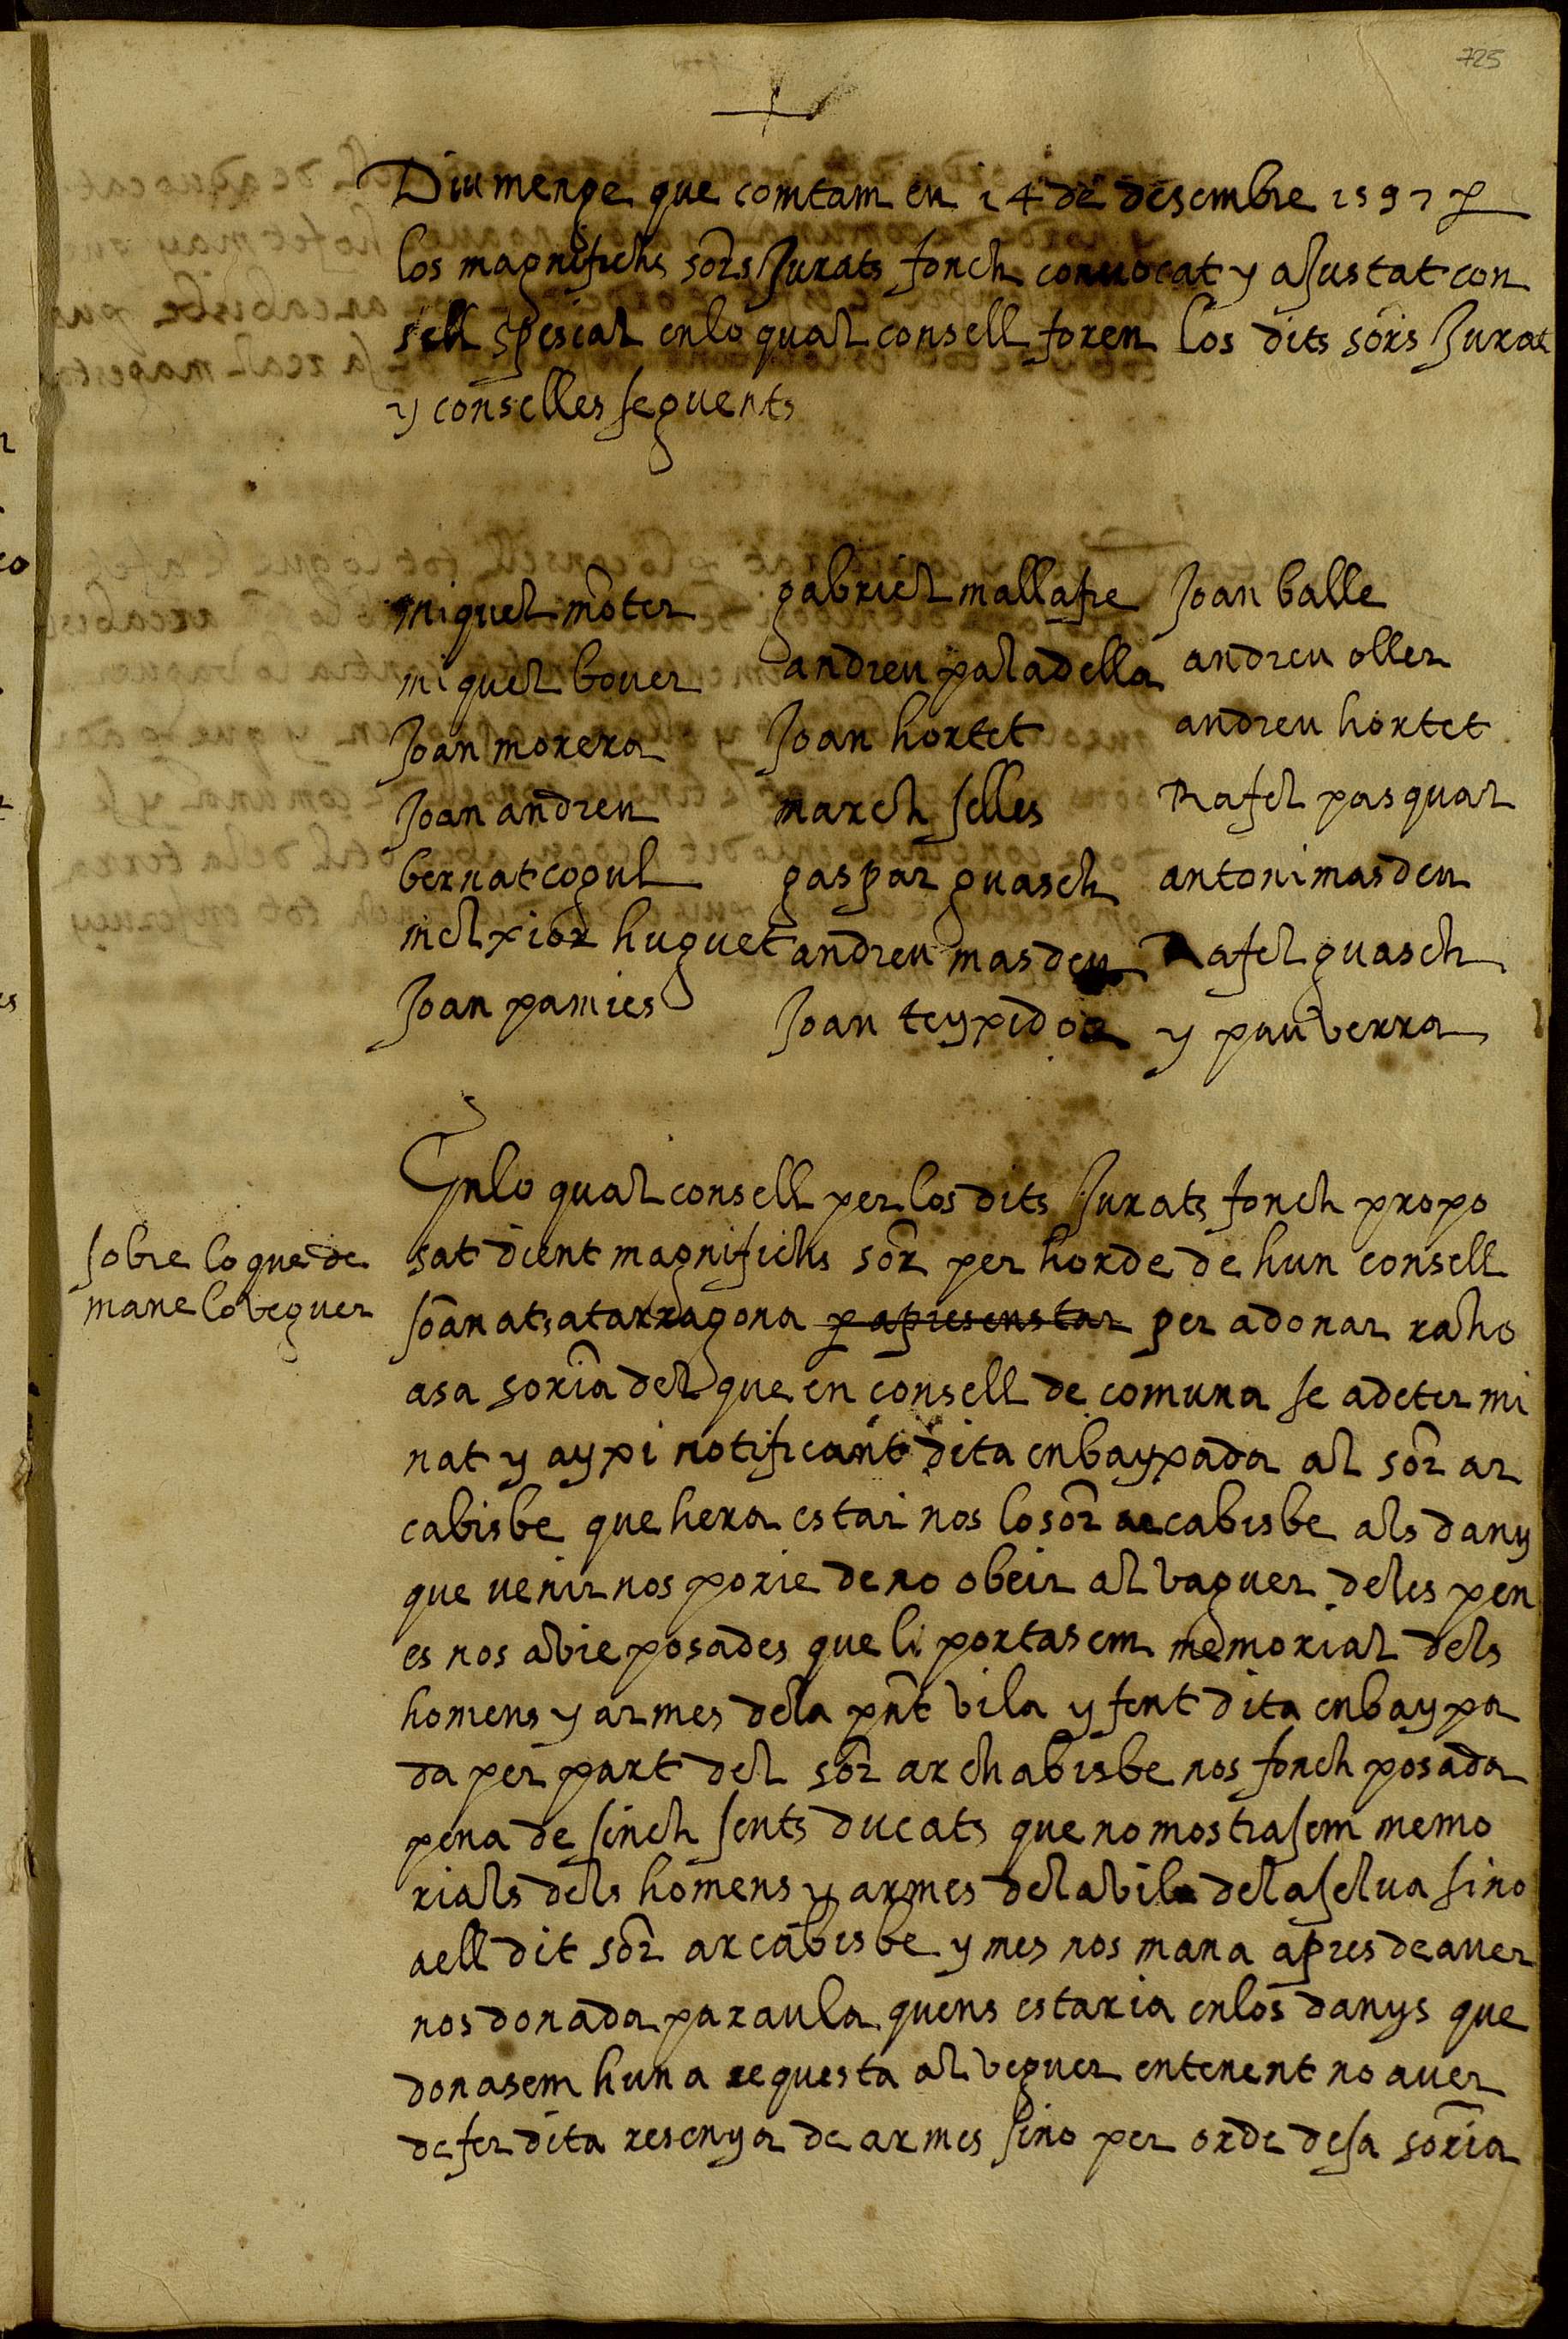 725
Diumenge que comtam en 14 de desembre 1597 p
los magnifichs sors Jurats fonch convocat y ajustat con
sell spesial en lo qual consell foren los dits sors Jurat
y conselles seguents
miquel moter
miquel bover
Joan morera
Joan andreu
bernat cogul
melxior huguet
Joan pamies
gabriel mallafre
andreu paladella
Joan hortet
march selles
gaspar guasch
andreu masdeu
Joan teyxidor
Joan balle
andreu oller
andreu hortet
Rafel pasqual
antoni masdeu
Rafel guasch
y pau verra
Sobre lo que de
mane lo veguer
En lo qual consell per los dits Jurats fonch propo
sat dient magnifichs sor per horde de hun consell
son anats a tarragona p apresenstar per a donar raho
a sa soria del que en consell de comuna se a determi
nat y ayxi notificant dita enbayxada al sor ar
cabisbe que hera estar i nos lo sor arcabisbe als dany
que venir nos porie de no obeir al vaguer de les pen
es nos abie posades que li portasem memorial dels
homens y armes de la pnt vila y fent dita enbayxa
da per part del sor archabisbe nos fonch posada
pena de sinch sents ducats que no mostrasem memo
rials dels homens y armes de la vila de la selva sino
a ell dit sor arcabisbe y mes nos mana apres de aver
nos donada paraula quens estaria en los danys que
donasem huna requesta al veguer entenent no aver
de fer dita resenya de armes sino per orde de sa soria